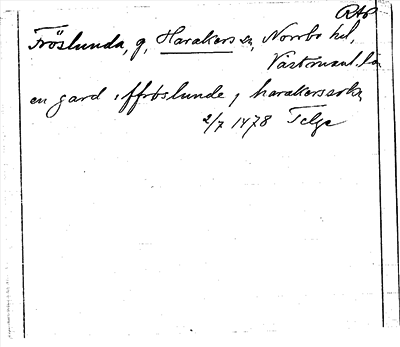 RAP
Fröslunda, g, Harakers sn, Norrbo hd,
Västmanl. län
en gard i ffröslunde j harakerssokn
2/7 1478 Telge